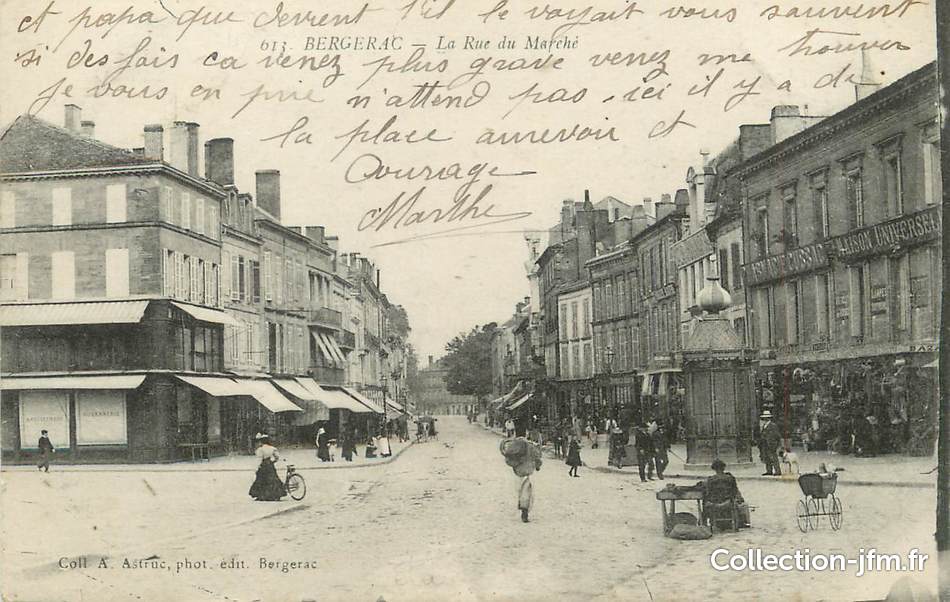 et papa que devrent t'il le voyait vous souvent
613. BERGERAC - La Rue du Marché
si des fais ca venez plus grave venez me trouver
je vous en prie n'attend pas. ici il y a de
la place aurevoir et
Courage
Marthe
MAISON UNIVERSELLE
Coll. A. Astruc, phot. édit. Bergerac
Collection-jfm.fr